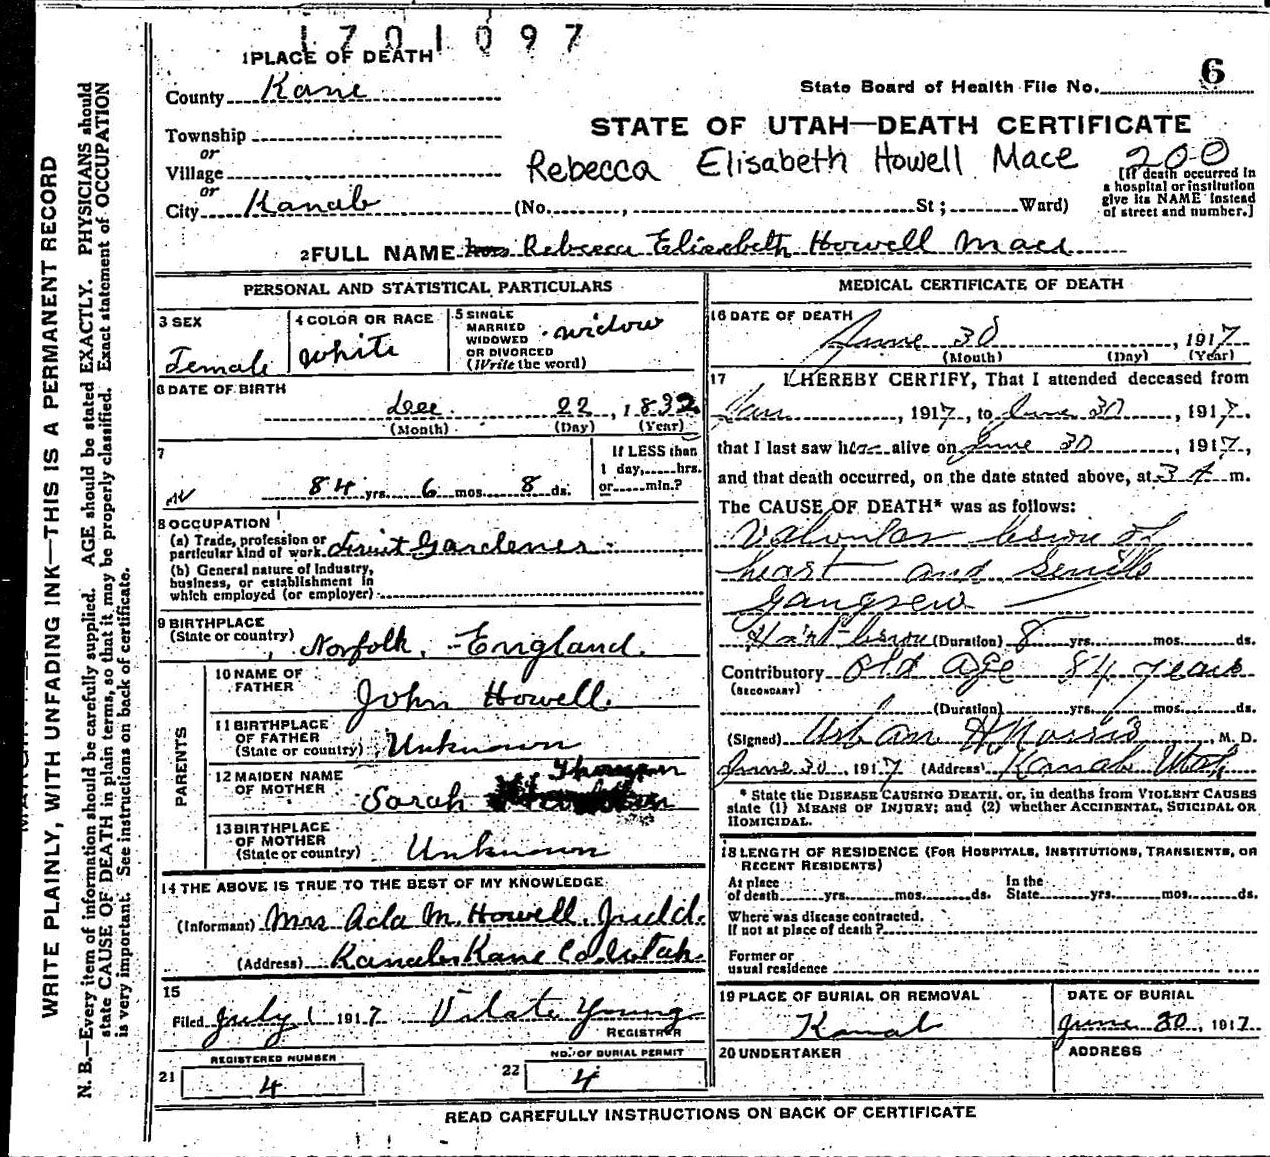 1701097
1 PLACE OF DEATH
County Kane
State Board of Health File No. 6
Township
or
Village
or
City Kanab
STATE OF UTAH—DEATH CERTIFICATE
Rebecca Elisabeth Howell Mace 200
[If death occurred in
a hospital or institution
give its NAME instead
of street and number.]
(No. , St; Ward)
2 FULL NAME Rebecca Elizabeth Howell Mace
PERSONAL AND STATISTICAL PARTICULARS
3 SEX
Female
4 COLOR OR RACE
White
5 SINGLE
MARRIED
WIDOWED
OR DIVORCED
(Write the word)
widow
6 DATE OF BIRTH
Dec. 22, 1832
(Month) (Day) (Year)
7
84 yrs. 6 mos. 8 ds.
If LESS than
1 day, hrs.
or min.?
8 OCCUPATION
(a) Trade, profession or
particular kind of work. Fruit Gardener
(b) General nature of Industry,
business, or establishment in
which employed (or employer)
9 BIRTHPLACE
(State or country)
Norfolk, England.
PARENTS
10 NAME OF
FATHER
John Howell
11 BIRTHPLACE
OF FATHER
(State or country)
Unknown
12 MAIDEN NAME
OF MOTHER
Sarah
13 BIRTHPLACE
OF MOTHER
(State or country)
Unknown
14 THE ABOVE IS TRUE TO THE BEST OF MY KNOWLEDGE
(Informant) Mrs Ada M. Howell Judd.
(Address) Kanab Kane Co Utah.
15
Filed July 1 1917 Vilate Young
REGISTRAR
REGISTERED NUMBER
21 4
NO. OF BURIAL PERMIT
22 4
MEDICAL CERTIFICATE OF DEATH
16 DATE OF DEATH
June 30, 1917
(Month) (Day) (Year)
17 I HEREBY CERTIFY, That I attended deceased from
Jan, 1917, to June 30, 1917.
that I last saw her alive on June 30, 1917,
and that death occurred, on the date stated above, at 3 A m.
The CAUSE OF DEATH* was as follows:
Valvular lesion of
heart and Senile
Gangrene
Heart lesion (Duration) 8 yrs. mos. ds.
Contributory Old Age 84 years
(SECONDARY)
(Duration) yrs. mos. ds.
(Signed) Urban H Norris M. D.
June 30, 1917 (Address) Kanab Utah
* State the DISEASE CAUSING DEATH, or, in deaths from VIOLENT CAUSES
state (1) MEANS OF INJURY; and (2) whether ACCIDENTAL, SUICIDAL OR
HOMICIDAL.
18 LENGTH OF RESIDENCE (FOR HOSPITALS, INSTITUTIONS, TRANSIENTS, OR
RECENT RESIDENTS)
At place
of death yrs. mos. ds.
In the
State yrs. mos. ds.
Where was disease contracted.
If not at place of death?
Former or
usual residence
19 PLACE OF BURIAL OR REMOVAL
Kanab
DATE OF BURIAL
June 30, 1917
20 UNDERTAKER
ADDRESS
READ CAREFULLY INSTRUCTIONS ON BACK OF CERTIFICATE
WRITE PLAINLY, WITH UNFADING INK—THIS IS A PERMANENT RECORD
N. B.—Every item of information should be carefully supplied. AGE should be stated EXACTLY. PHYSICIANS should
state CAUSE OF DEATH in plain terms, so that it may be properly classified. Exact statement of OCCUPATION
is very important. See instructions on back of certificate.